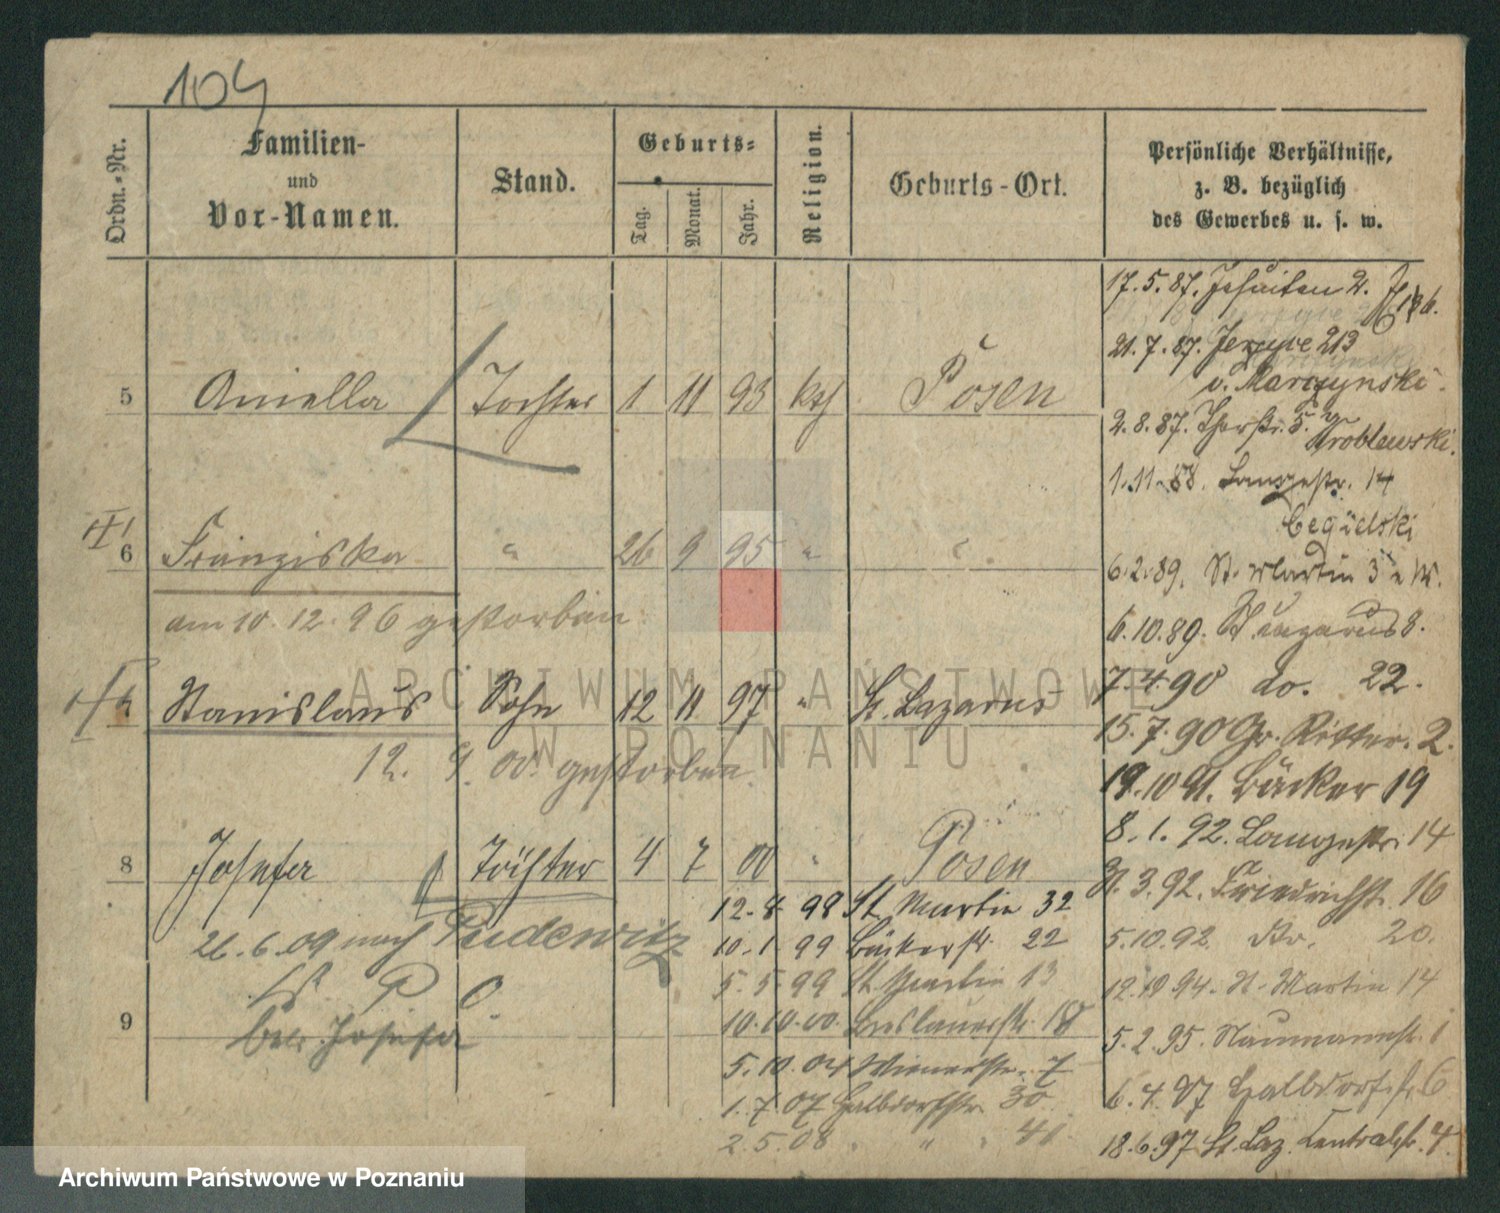 104
Ordn.-Nr.
Familien-
und
Vor-Namen.
Stand.
Geburts-
Tag.
Monat.
Jahr.
Religion.
Geburts-Ort.
Persönliche Verhältnisse,
z. B. bezüglich
des Gewerbes u. s. w.
5 Aniella Tochter 1 11 93 kth Posen
6 Franziska " 26 9 95 " "
am 10. 12. 96 gestorben
Stanislaus Sohn 12 11 97 " St. Lazarus
12. 9. 00. gestorben
8 Josefa Tochter 4 7 00 " Posen
26. 6. 09 nach Pudewitz
9
betr. Josefa
12. 8. 98 St. Martin 32
10. 1. 99 Bäckerstr. 22
5. 5. 99 St. Martin 13
10. 10. 00. Breslauerstr. 18
5. 10. 04 Wienerstr. 7
1. 7. 07 Halbdorfstr. 30
2. 5. 08 " " 41
17. 5. 87. Jesuiten 2.
21. 7. 87. Jerzyce 213
v. Marzynski.
2. 8. 87. Thorstr. 5.
Wroblewski.
1. 11. 88. Langestr. 14
Cegielski
6. 2. 89. St. Martin 3
6. 10. 89. St Lazarus 8.
7. 4. 90 do. 22.
15. 7. 90 Gr. Ritter. 2.
19. 10 91. Bäcker 19
8. 1. 92. Langestr. 14
3. 92. Friedrichst. 16
5. 10. 92. do. 20.
12. 10 94. St. Martin 14
5. 2. 95. Naumannstr. 1
6. 4. 97 Halbdorfstr. 6
18. 6. 97 St. Laz. Centralstr. 4.
ARCHIWUM PAŃSTWOWE
W POZNANIU
Archiwum Państwowe w Poznaniu